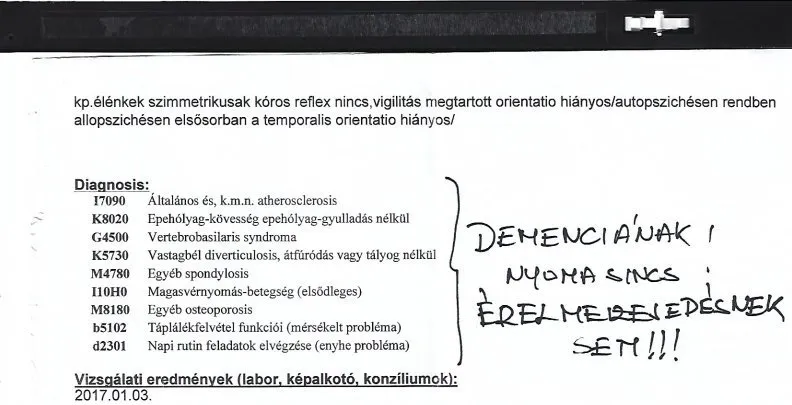 kp.élénkek szimmetrikusak kóros reflex nincs,vigilitás megtartott orientatio hiányos/autopszichésen rendben
allopszichésen elsősorban a temporalis orientatio hiányos/
Diagnosis:
I7090 Általános és, k.m.n. atherosclerosis
K8020 Epehólyag-kövesség epehólyag-gyulladás nélkül
G4500 Vertebrobasilaris syndroma
K5730 Vastagbél diverticulosis, átfúródás vagy tályog nélkül
M4780 Egyéb spondylosis
I10H0 Magasvérnyomás-betegség (elsődleges)
M8180 Egyéb osteoporosis
b5102 Táplálékfelvétel funkciói (mérsékelt probléma)
d2301 Napi rutin feladatok elvégzése (enyhe probléma)
DEMENCIÁNAK
NYOMA SINCS
ÉRELMESZESEDÉSNEK
SEM!!!
Vizsgálati eredmények (labor, képalkotó, konzíliumok):
2017.01.03.